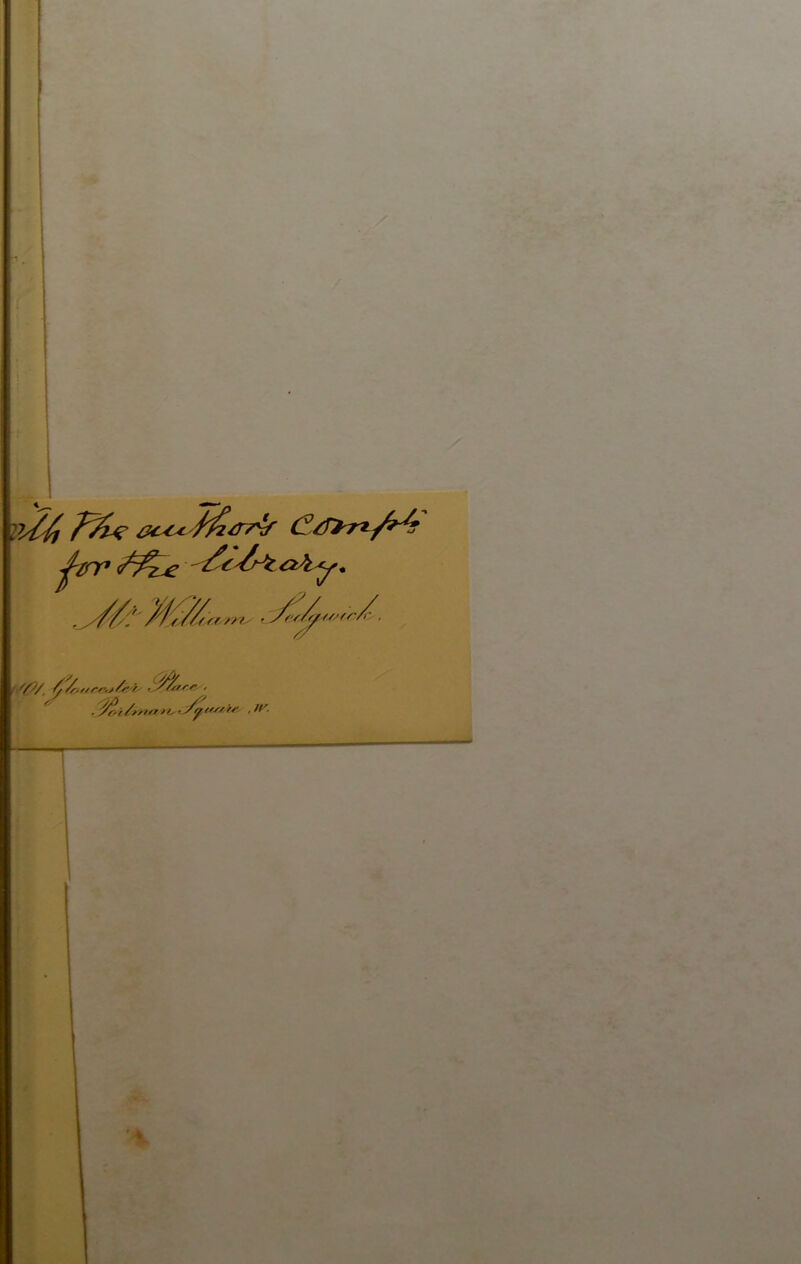 with The author's Compts
for The Library.
Mr. William Sedgwick.
101, Gloucester Place,
Portman Square, W.